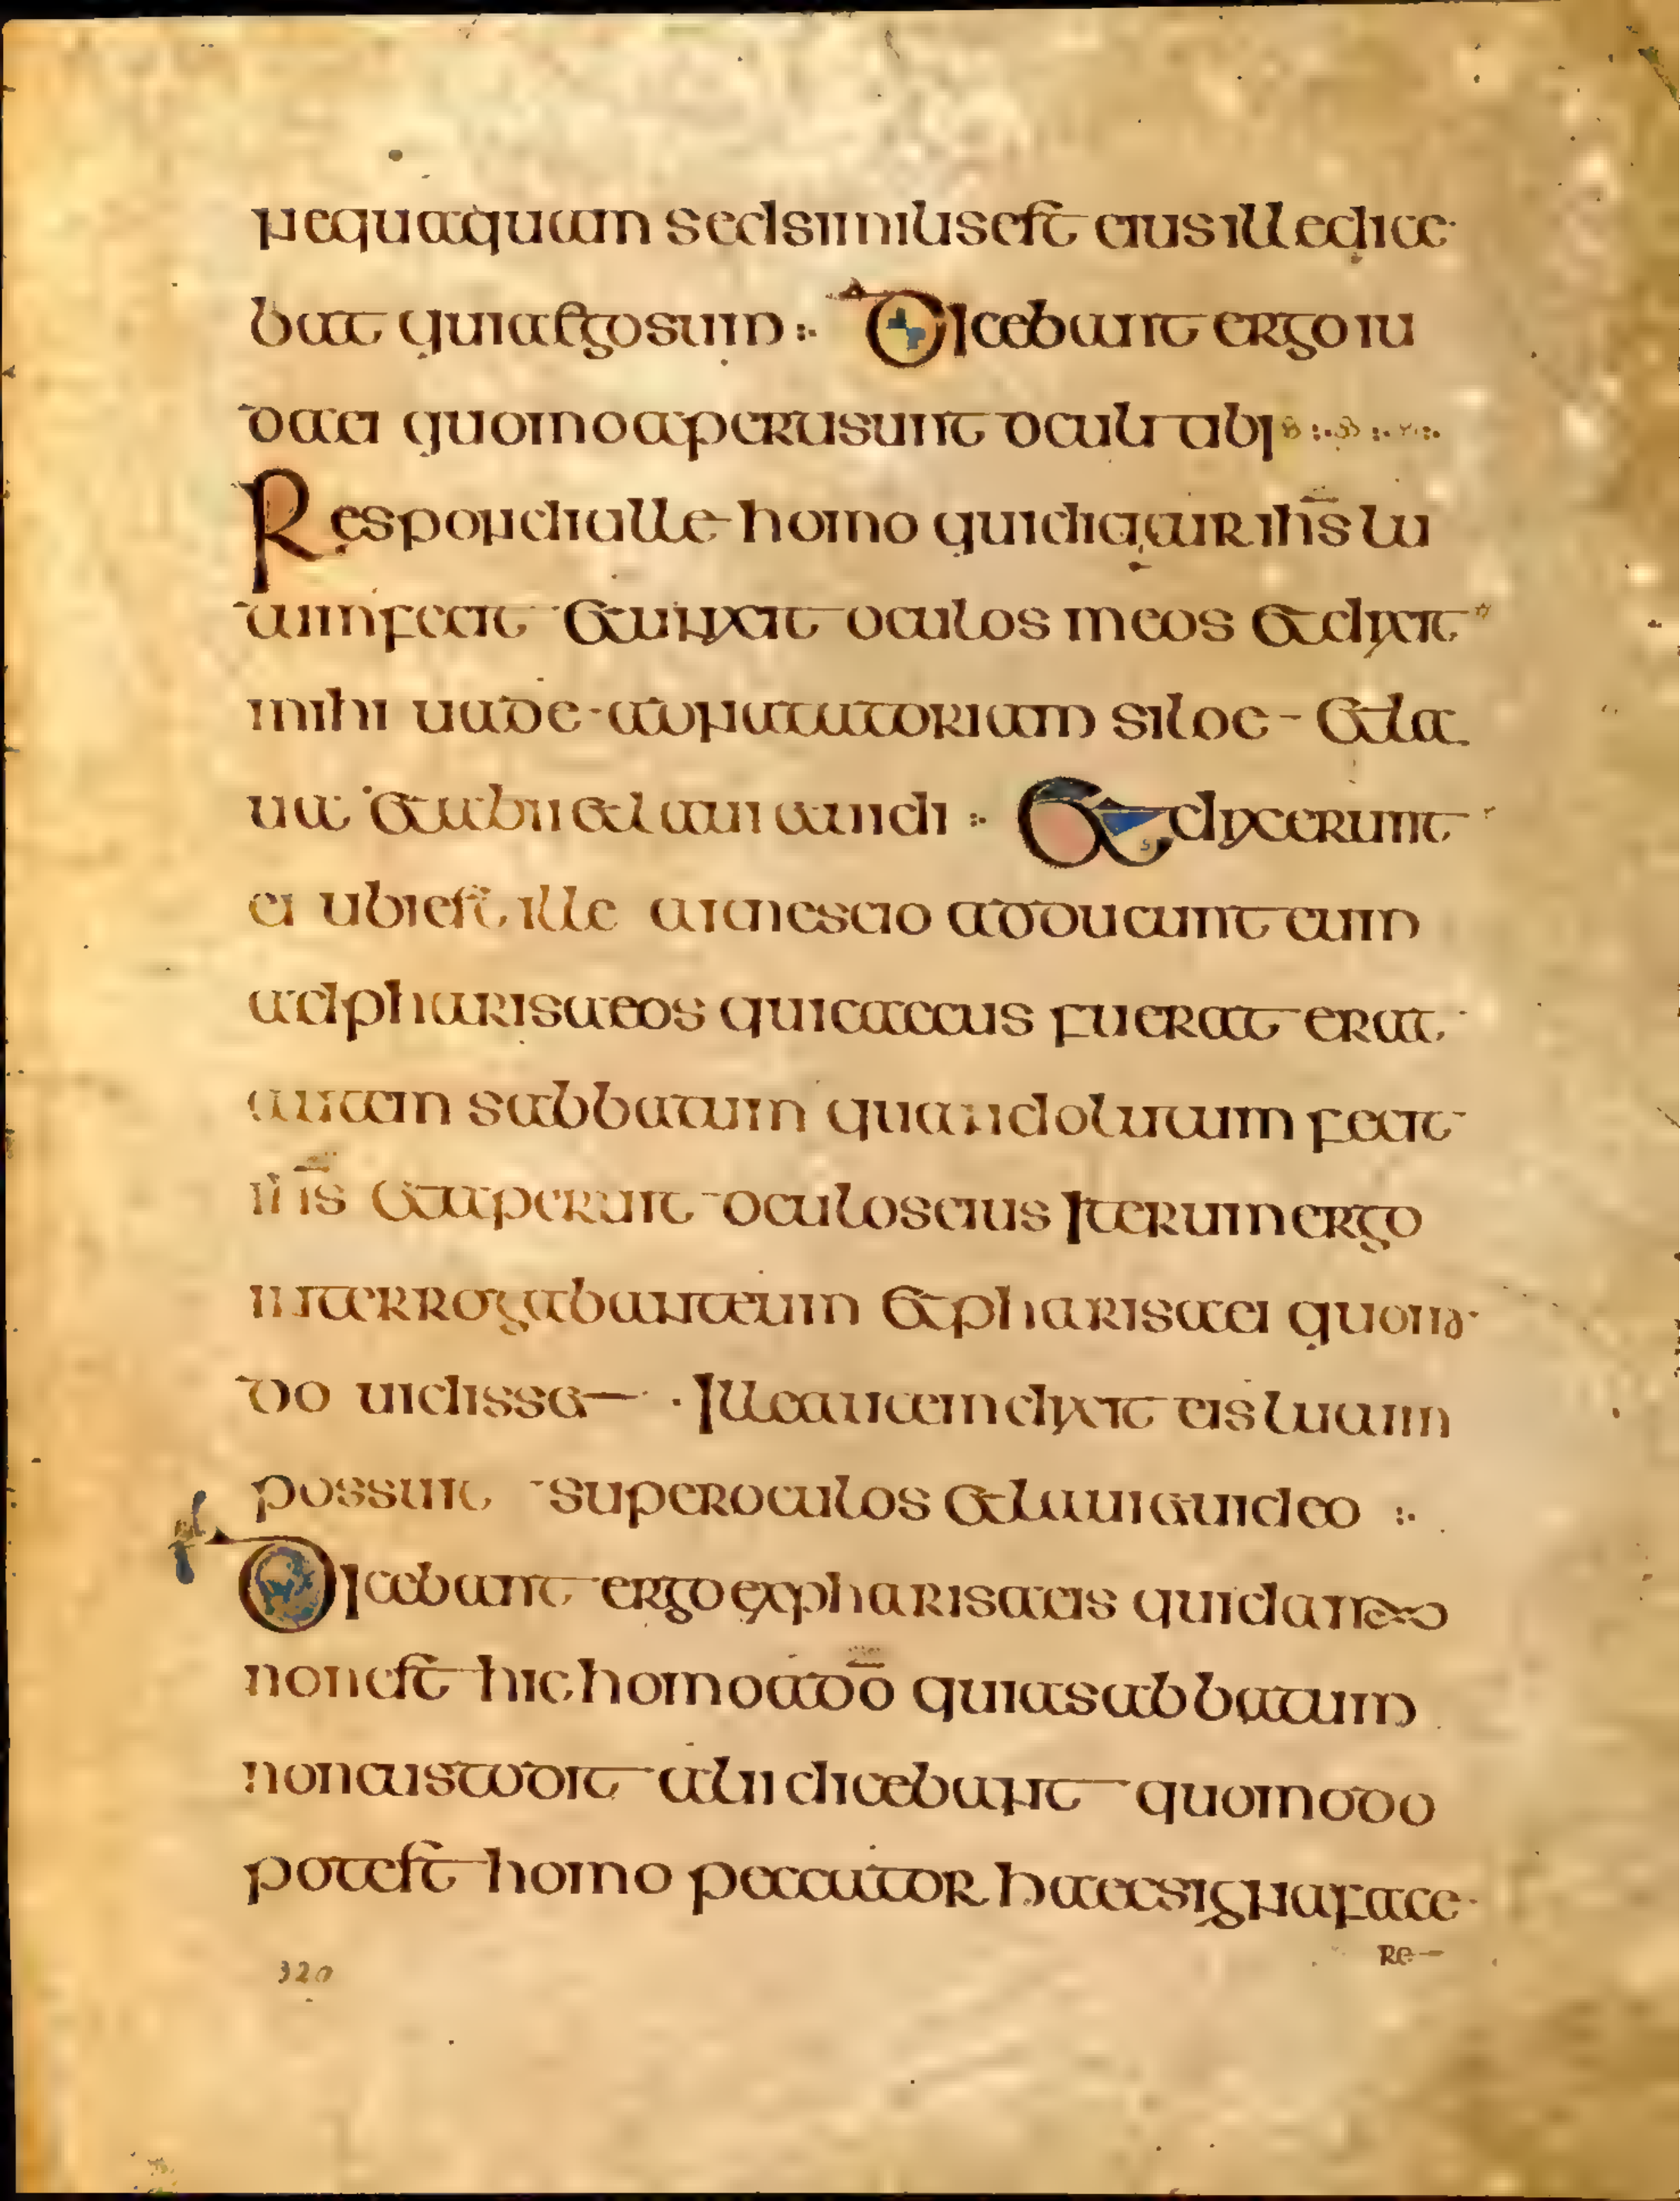 nequaquam sed similis est eius ille dice
bat quia ego sum Dicebant ergo iu
daei quomo aperti sunt oculi tibi
Respondit ille homo qui dicitur ihs lu
tum fecit et unxit oculos meos et dixit
mihi uade ad natatoriam siloe et la
ua et abii et laui et uidi Et dixerunt
ei ubi est ille ait nescio adducunt eum
ad pharisaeos qui caecus fuerat erat
autem sabbatum quando lutum fecit
ihs et aperuit oculos eius Iterum ergo
interrogabant eum et pharisaei quomo
do uidisset Ille autem dixit eis lutum
possuit super oculos et laui et uideo
Dicebant ergo ex pharisaeis quidam
non est hic homo a do quia sabbatum
non custodit alii dicebant quomodo
potest homo peccator haec signa face
re
320